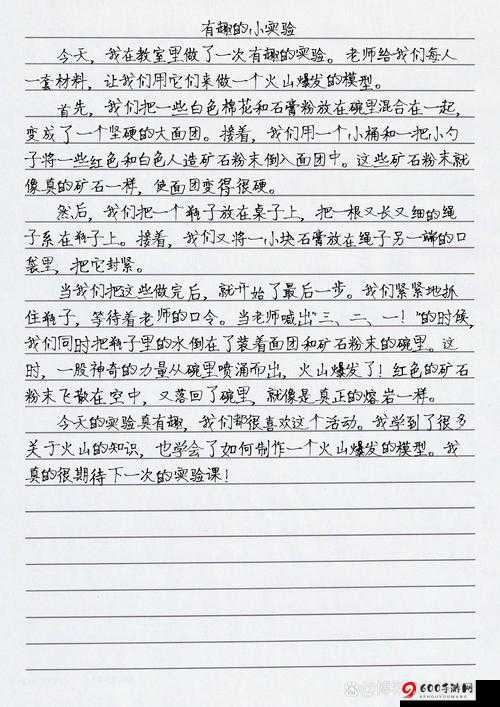 有趣的小实验
今天，我在教室里做了一次有趣的实验。老师给我们每人
一套材料，让我们用它们来做一个火山爆发的模型。
首先，我们把一些白色棉花和石膏粉放在碗里混合在一起，
变成了一个坚硬的大面团。接着，我们用一个小桶和一把小勺
子将一些红色和白色人造矿石粉末倒入面团中。这些矿石粉末就
像真的矿石一样，使面团变得很硬。
然后，我们把一个瓶子放在桌子上，把一根又长又细的绳
子系在瓶子上。接着，我们又将一小块石膏放在绳子另一端的口
袋里，把它封紧。
当我们把这些做完后，就开始了最后一步。我们紧紧地抓
住瓶子，等待着老师的口令。当老师喊出"三、二、一！"的时候，
我们同时把瓶子里的水倒在了装着面团和矿石粉末的碗里。这
时，一股神奇的力量从碗里喷涌而出，火山爆发了！红色的矿石
粉末飞散在空中，又落回了碗里，就像是真正的熔岩一样。
今天的实验真有趣，我们都很喜欢这个活动。我学到了很多
关于火山的知识，也学会了如何制作一个火山爆发的模型。我
真的很期待下一次的实验课！
600手游网